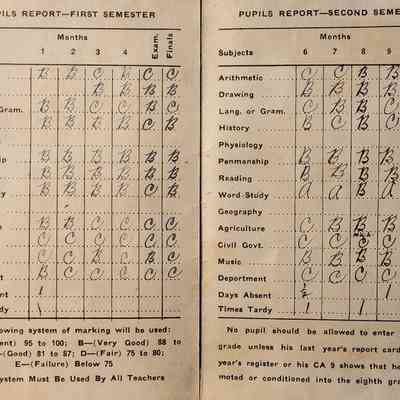 PUPILS REPORT—FIRST SEMESTER
Months
1 2 3 4 Exam. Finals
B B C B C C
B B B B
Gram. B B C C B C
B B B B C B
ip B B B B B B
B B B B B B
y B B B B C B
B B C C C C
C C C C C C
C B C C B C
t B C C C C C
nt 1
y 1
owing system of marking will be used:
ent) 95 to 100; B—(Very Good) 88 to
—(Good) 81 to 87; D—(Fair) 75 to 80;
E—(Failure) Below 75
ystem Must Be Used By All Teachers
UPILS REPORT—SECOND SEME
Months
Subjects 6 7 8 9
Arithmetic C C B B
Drawing B B B B
Lang. or Gram. C B B C
History B C B C
Physiology
Penmanship B B B B
Reading B B B B
Word Study A A B A
Geography
Agriculture C B B B
Civil Govt. C C C C
Music B B B B
Deportment C C C C
Days Absent ½
Times Tardy 1 1 1
No pupil should be allowed to enter
grade unless his last year's report card
year's register or his CA 9 shows that he
moted or conditioned into the eighth gra